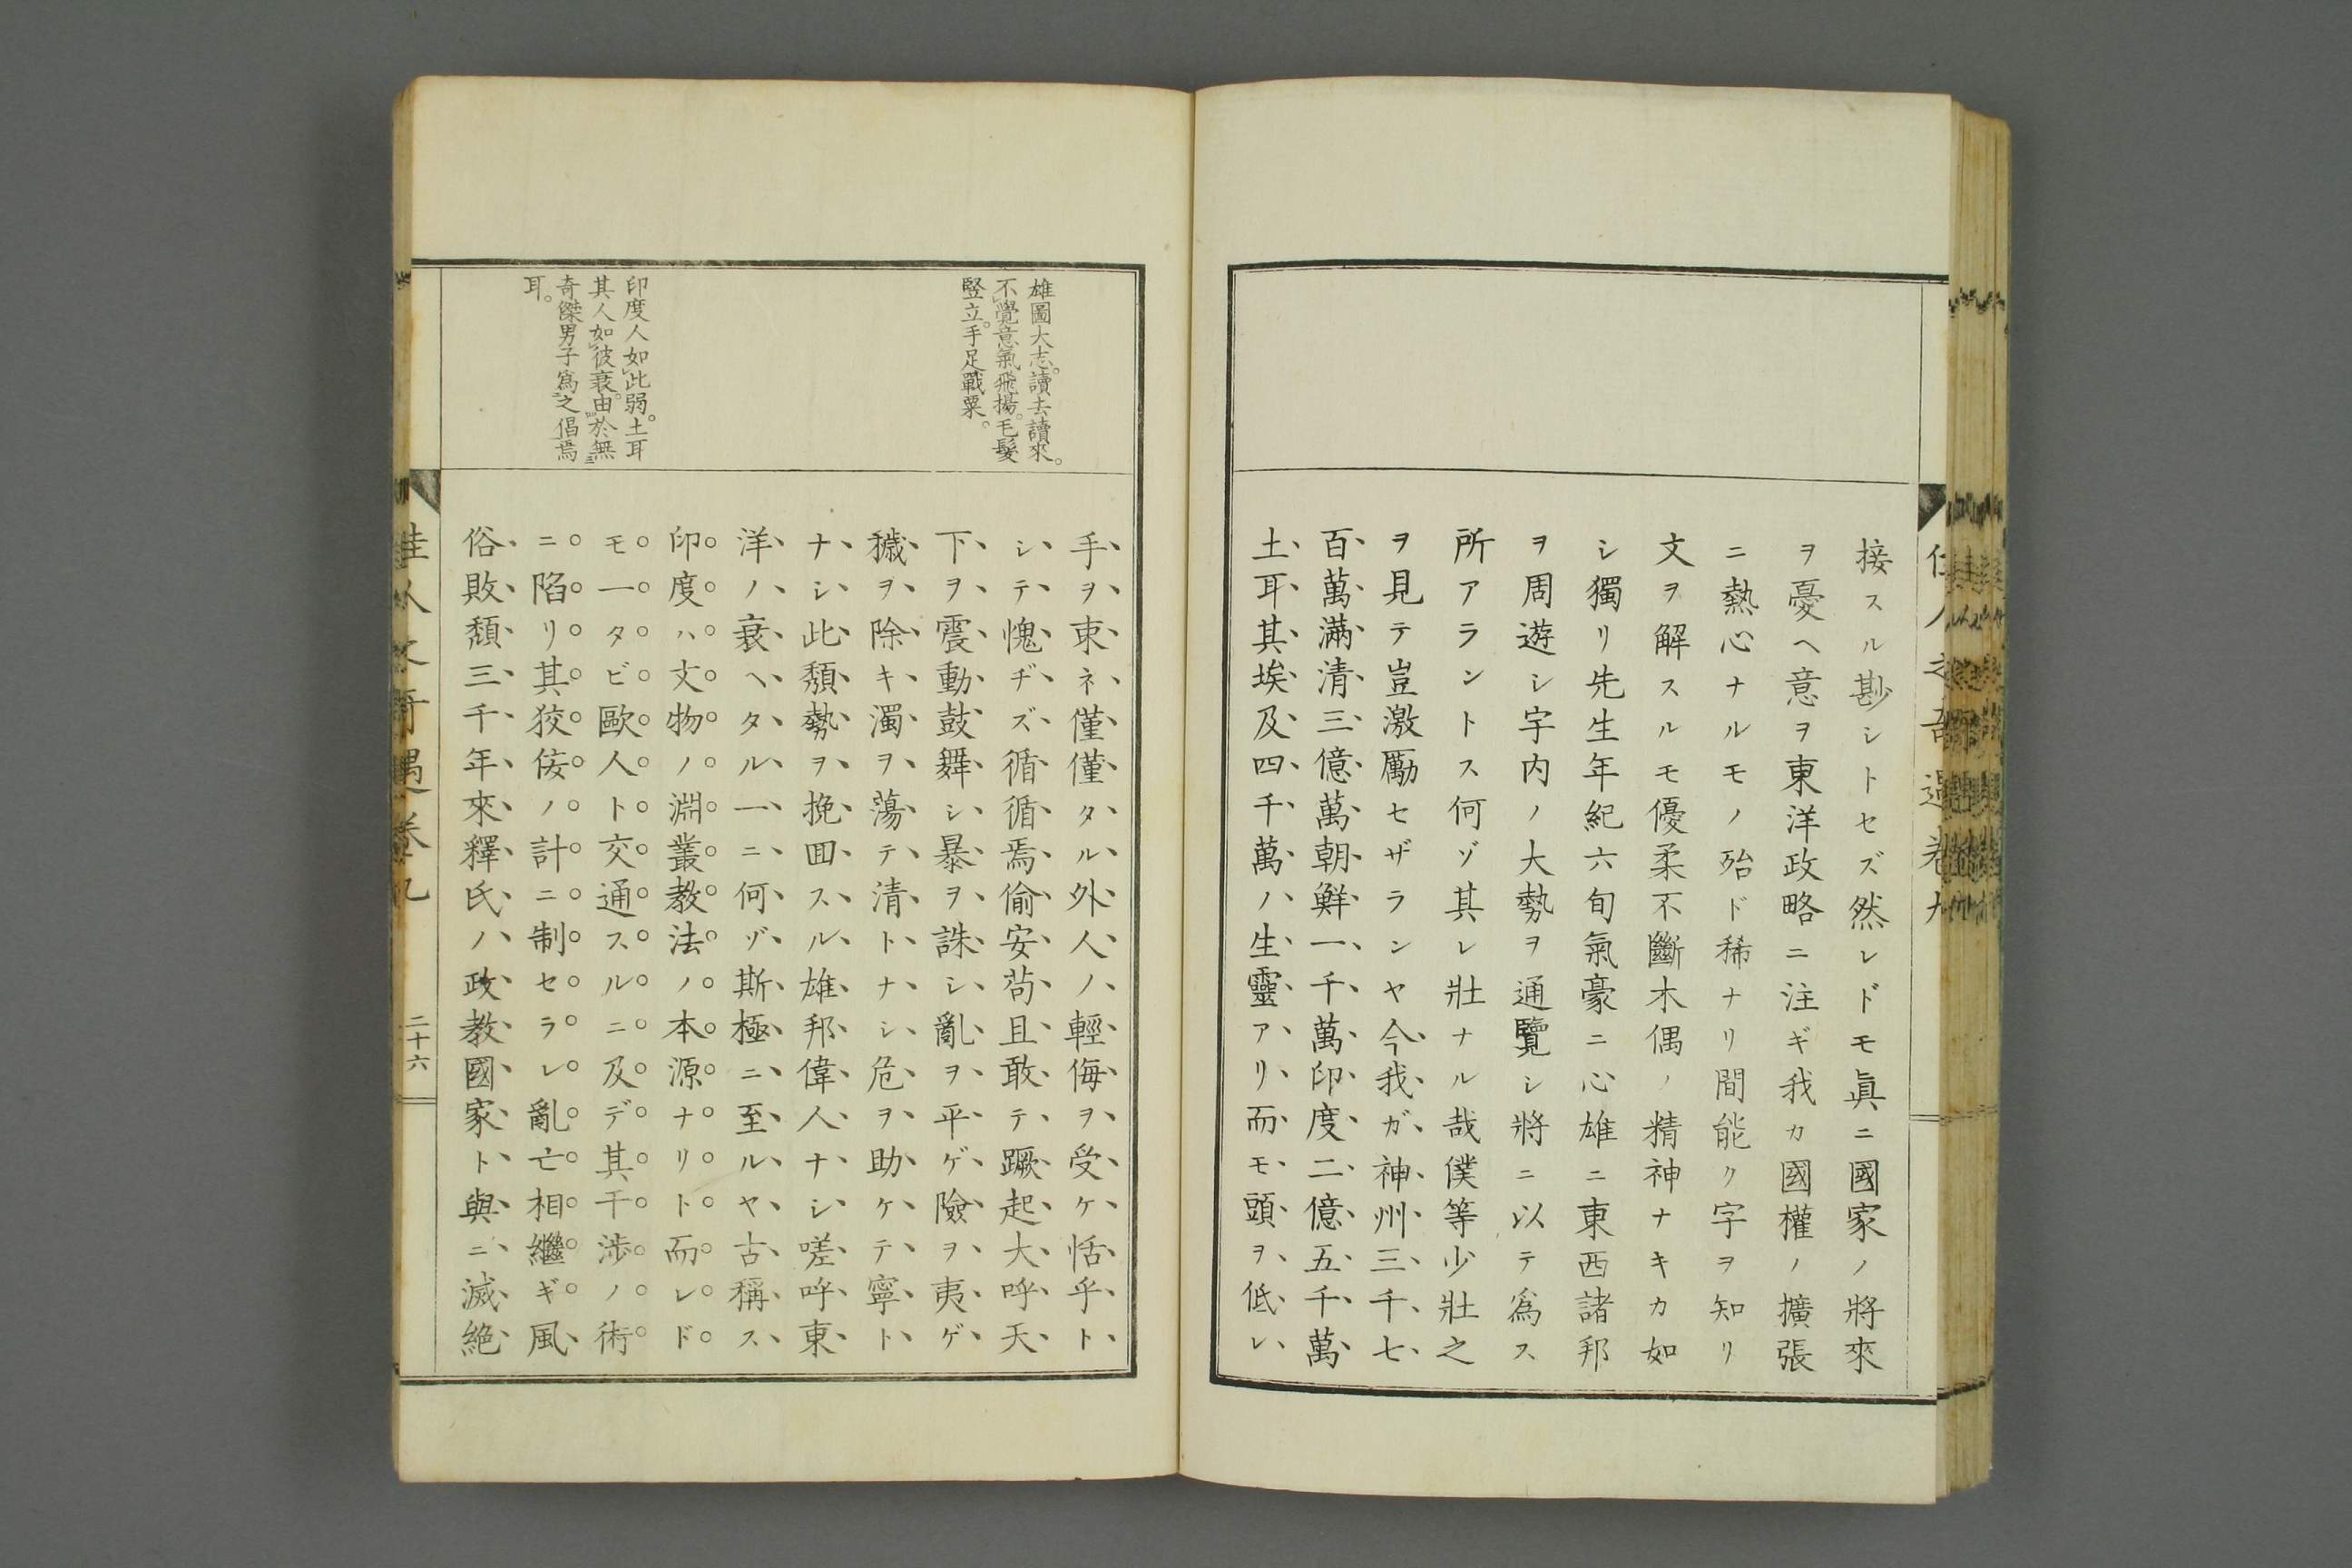 接スル尠シトセズ然レドモ眞ニ國家ノ將來
ヲ憂ヘ意ヲ東洋政略ニ注ギ我カ國權ノ擴張
ニ熱心ナルモノ殆ド稀ナリ間能ク字ヲ知リ
文ヲ解スルモ優柔不斷木偶ノ精神ナキカ如
シ獨リ先生年紀六旬氣豪ニ心雄ニ東西諸邦
ヲ周遊シ宇內ノ大勢ヲ通覽シ將ニ以テ爲ス
所アラントス何ゾ其レ壯ナル哉僕等少壯之
ヲ見テ豈激勵セザランヤ今我ガ神州三千七
百萬滿清三億萬朝鮮一千萬印度二億五千萬
土耳其埃及四千萬ノ生靈アリ而モ頭ヲ低レ
雄圖大志。讀去讀來。
不覺意氣飛揚。毛髮
竪立。手足戰粟。
印度人如此弱。土耳
其人如彼衰。由於無
奇傑男子爲之倡焉
耳。
手ヲ束ネ僅僅タル外人ノ輕侮ヲ受ケ恬乎ト
シテ愧ヂズ循循焉偷安苟且敢テ蹶起大呼天
下ヲ震動鼓舞シ暴ヲ誅シ亂ヲ平ゲ險ヲ夷ゲ
穢ヲ除キ濁ヲ蕩テ清トナシ危ヲ助ケテ寧ト
ナシ此頽勢ヲ挽回スル雄邦偉人ナシ嗟呼東
洋ノ衰ヘタル一ニ何ゾ斯極ニ至ルヤ古稱ス
印度ハ文物ノ淵叢教法ノ本源ナリト而レド
モ一タビ歐人ト交通スルニ及デ其干涉ノ術
ニ陷リ其狡佞ノ計ニ制セラレ亂亡相繼ギ風
俗敗頽三千年來釋氏ノ政教國家ト與ニ滅絕
佳人之奇遇卷九
二十六